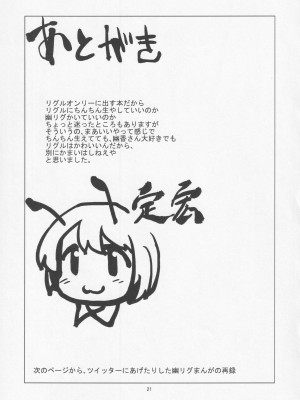 あとがき
リグルオンリーに出す本だから
リグルにちんちん生やしていいのか
幽リグかいていいのか
ちょっと迷ったところもありますが
そういうの、まあいいやって感じで
ちんちん生えてても、幽香さん大好きでも
リグルはかわいいんだから、
別にかまいはしねえや
と思いました。
定宏
次のページから、ツイッターにあげたりした幽リグまんがの再録
21